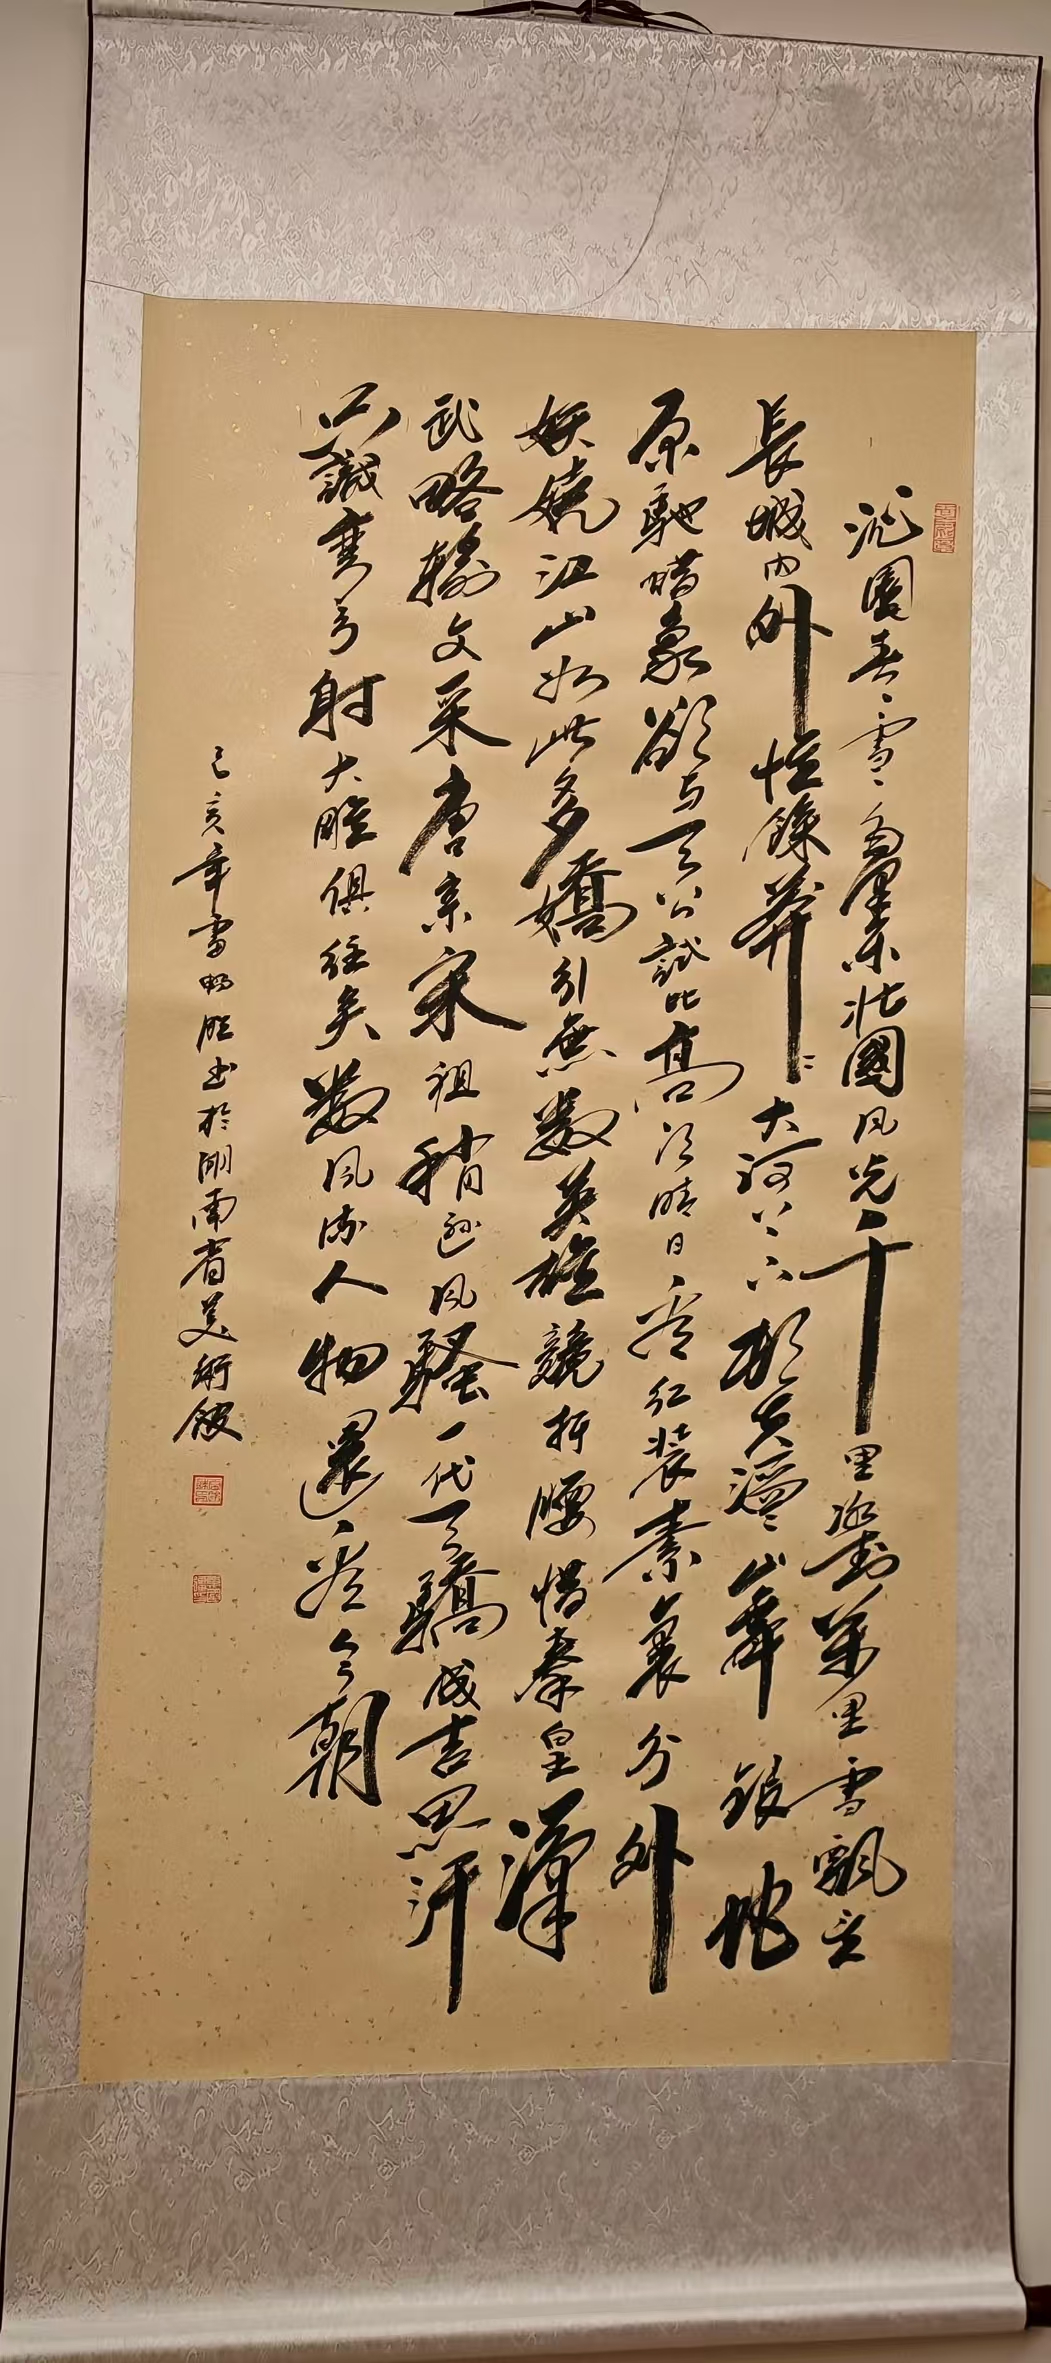 沁園春、雪、北國風光千里冰封萬里雪飄望
長城内外惟餘莽々大河上下頓失滔々山舞銀蛇
原馳蠟象欲與天公試比高須晴日看紅裝素裹分外
妖嬈江山如此多嬌引無數英雄競折腰惜秦皇漢
武略輸文采唐宗宋祖稍遜風騷一代天驕成吉思汗
只識彎弓射大雕俱往矣數風流人物還看今朝
己亥年書於湖南省美術館